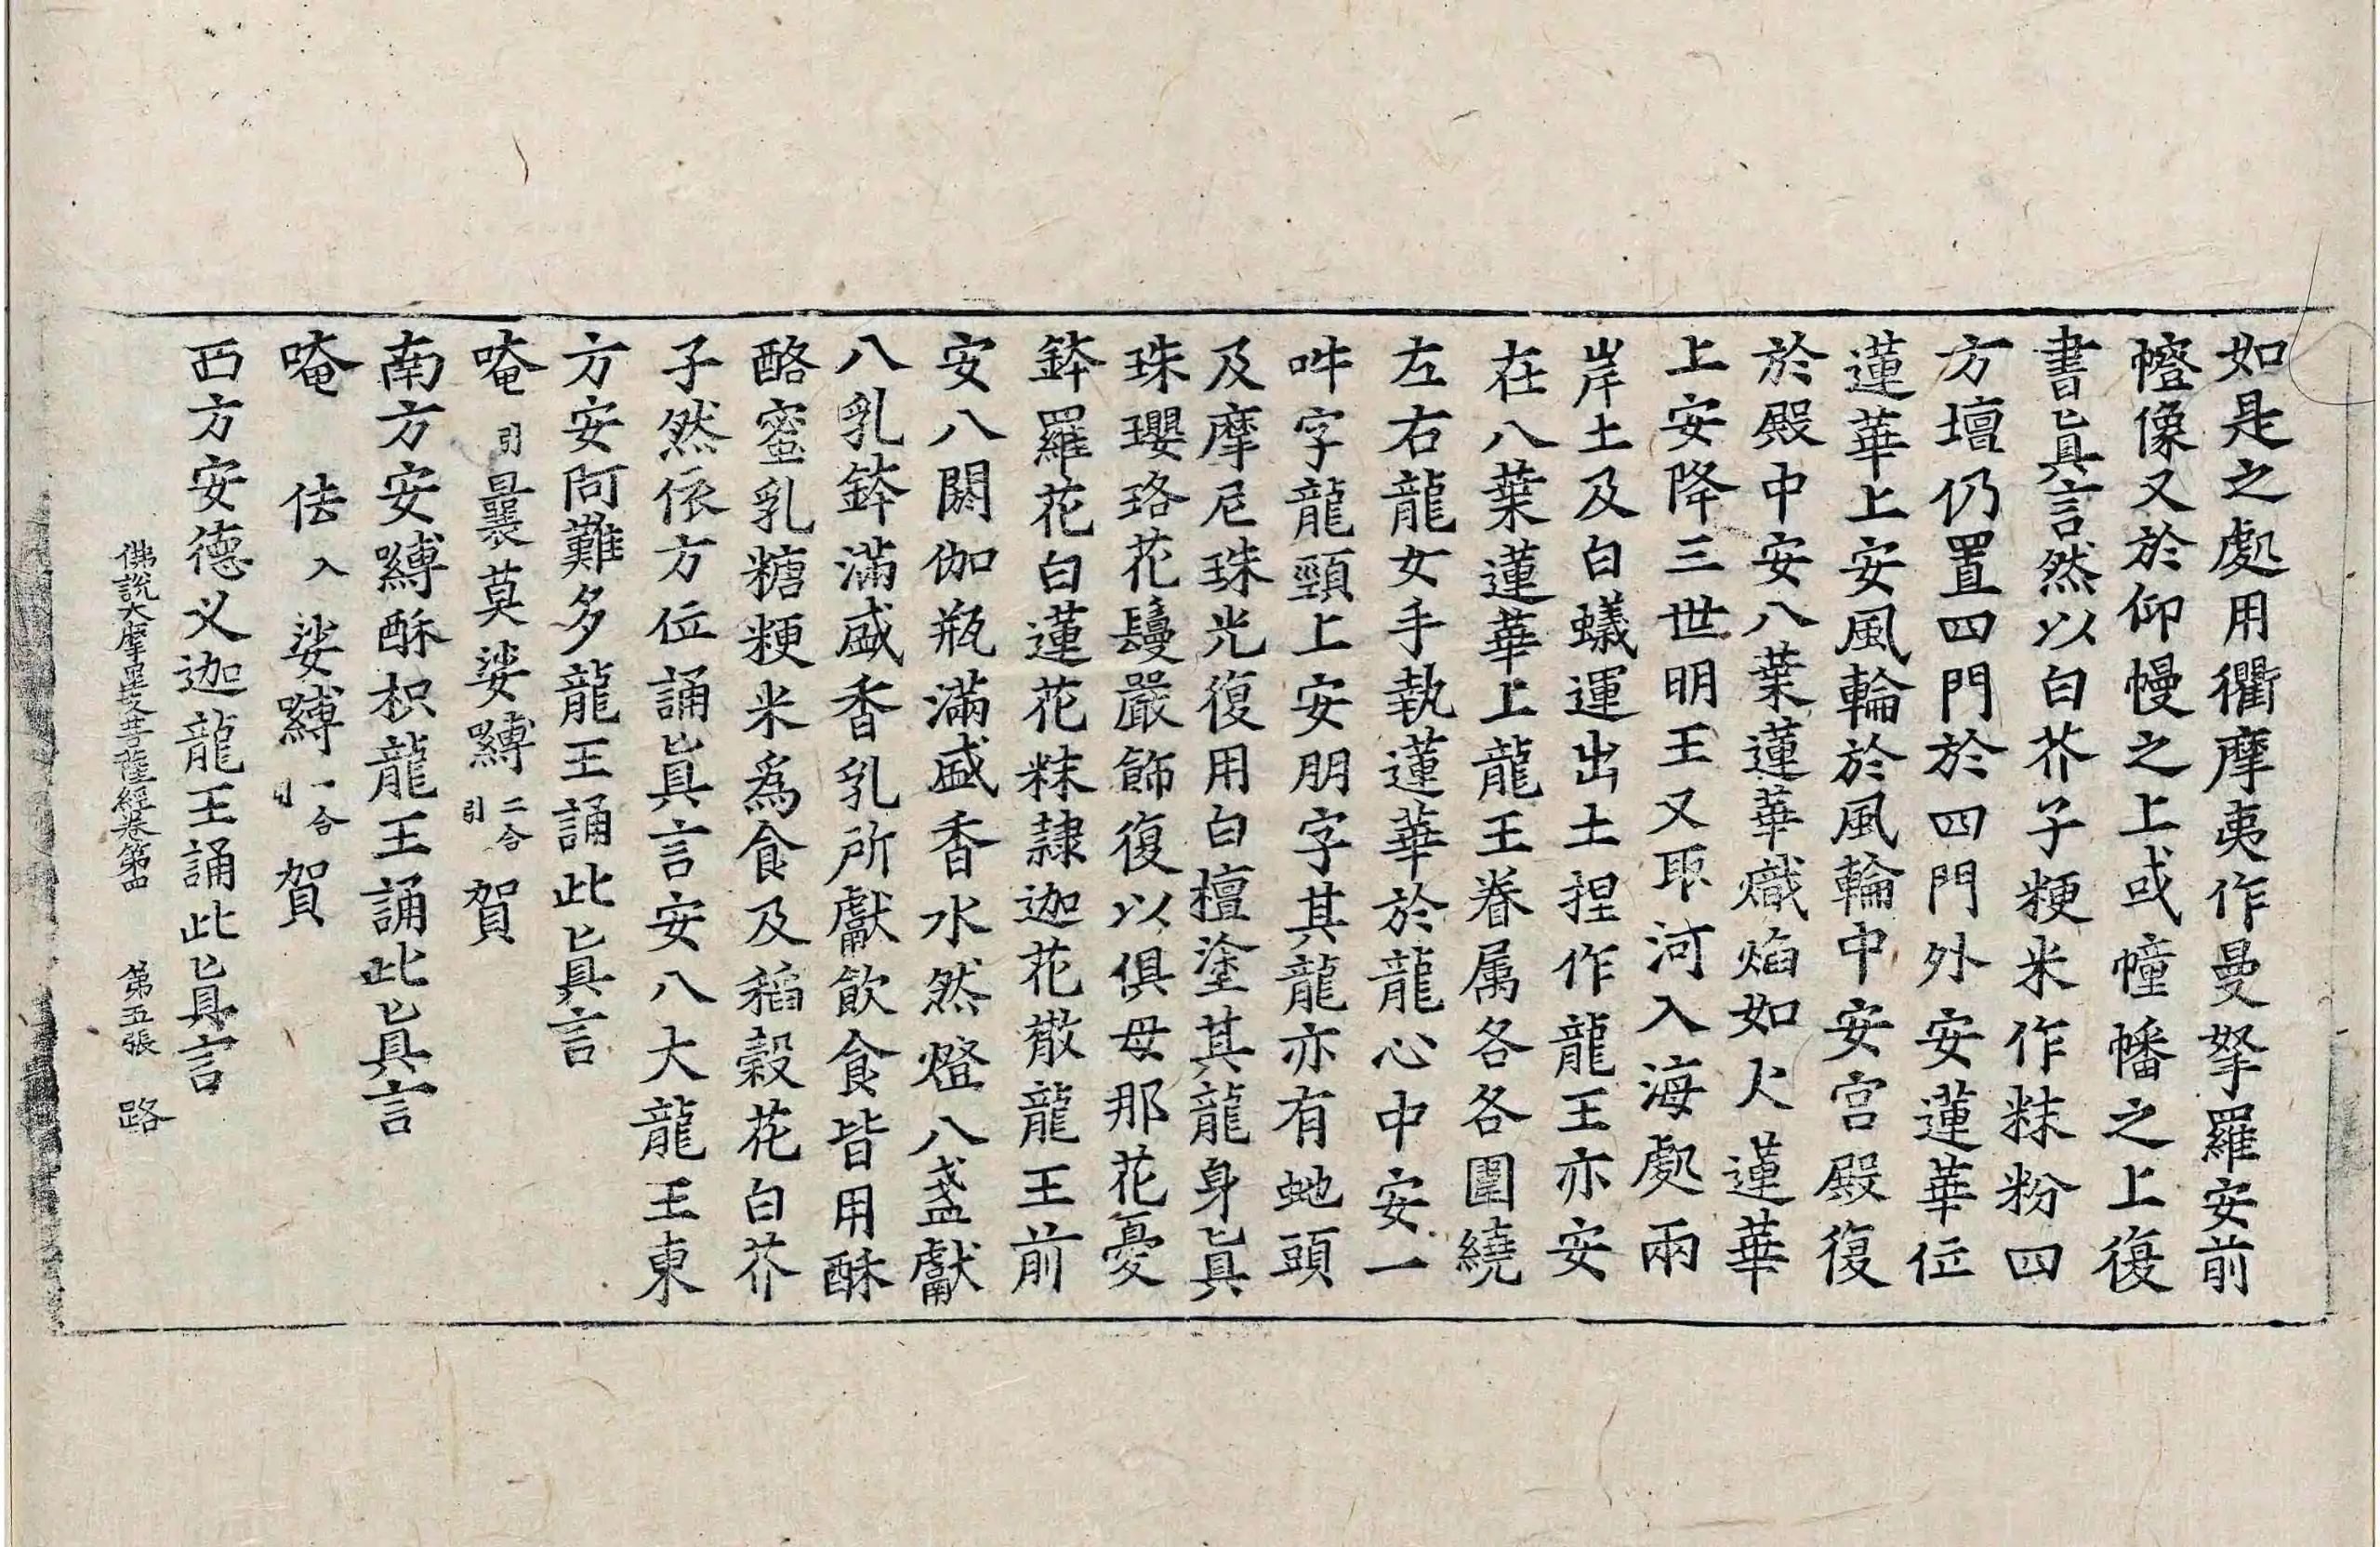 如是之處用衢摩夷作曼拏羅安前
㡧像又於仰幔之上或幢幡之上復
書眞言然以白芥子粳米作粖粉四
方壇仍置四門於四門外安蓮華位
蓮華上安風輪於風輪中安宮殿復
於殿中安八葉蓮華熾焰如火蓮華
上安降三世明王又取河入海處兩
岸土及白蟻運出土捏作龍王亦安
在八葉蓮華上龍王眷属各各圍繞
左右龍女手執蓮華於龍心中安一
吽字龍頸上安朋字其龍亦有虵頭
及摩尼珠光復用白檀塗其龍身眞
珠瓔珞花鬘嚴飾復以俱母那花憂
鉢羅花白蓮花粖隷迦花散龍王前
安八閼伽瓶滿盛香水然燈八盞獻
八乳鉢滿盛香乳所獻飲食皆用酥
酪蜜乳糖粳米爲食及稻穀花白芥
子然依方位誦眞言安八大龍王東
方安阿難多龍王誦此眞言
唵引曩莫娑嚩二合引賀
南方安嚩酥枳龍王誦此眞言
唵 佉入娑嚩二合引賀
西方安德义迦龍王誦此眞言
佛說大摩里支菩薩經卷第四 第五張 路